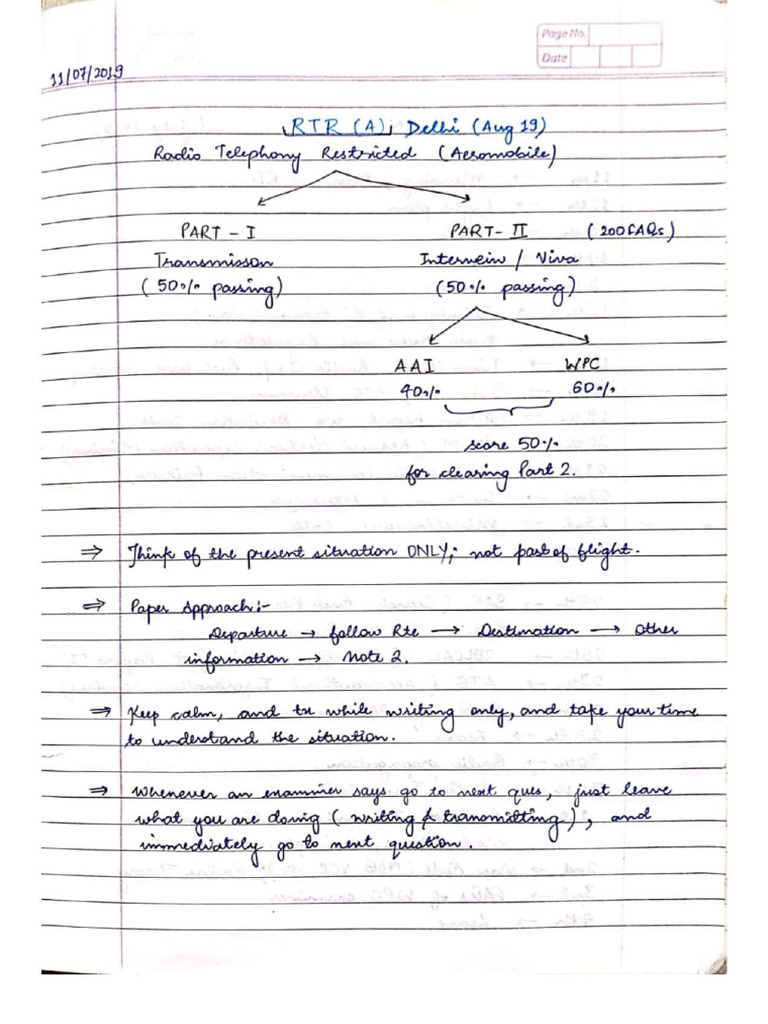 Page No.
Date
11/07/2019
RTR (A), Delhi (Aug 19)
Radio Telephony Restricted (Aeromobile)
PART - I PART - II (200 FAQs)
Transmisson Internein / Viva
(50% passing) (50% passing)
AAI WPC
40% 60%
score 50%
for clearing Part 2.
⇒ Think of the present situation ONLY; not past of flight.
⇒ Paper Approach:-
Departure → follow Rte → Destination → Other
information → Note 2.
⇒ Keep calm, and tx while writing only, and take your time
to understand the situation.
⇒ Whenever an examiner says go to next ques, just leave
what you are doing (writing & transmitting), and
immediately go to next question.